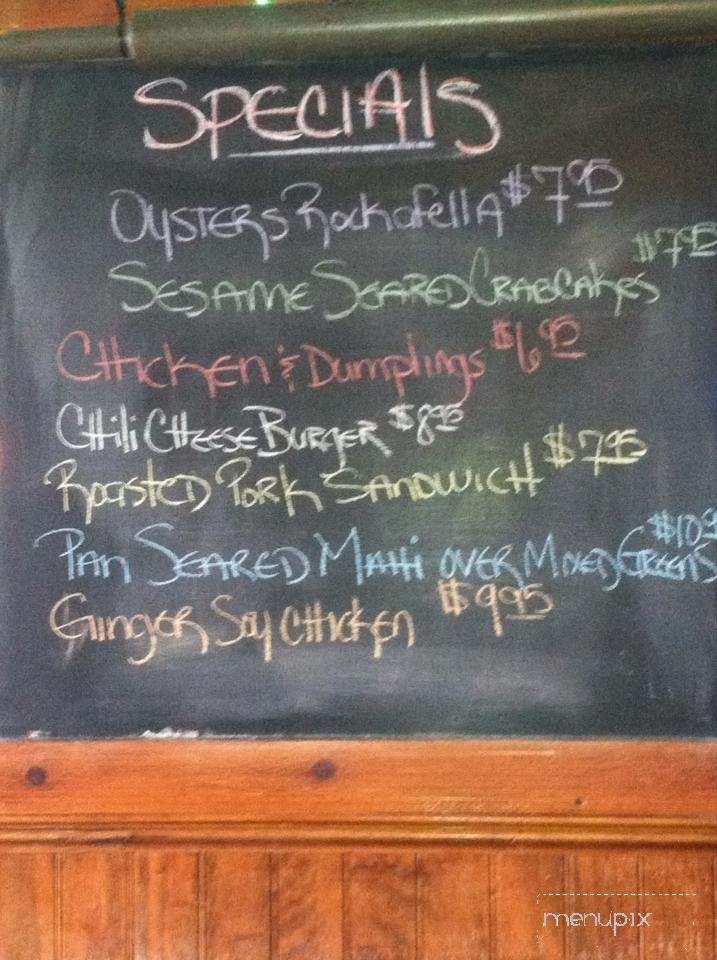 SPECIAlS
OYSTERS RockafellA $7.95
SESAME SEARED CRABCAKES $7.95
CHicKEn & Dumplings $6.95
CHili CHEESE BURGER $8.95
ROASTED PORK SANDWICH $7.95
PAn SEARED MAHi OVER MIXED GREENS $10.9
GingER Soy CHicKEn $9.95
menupix